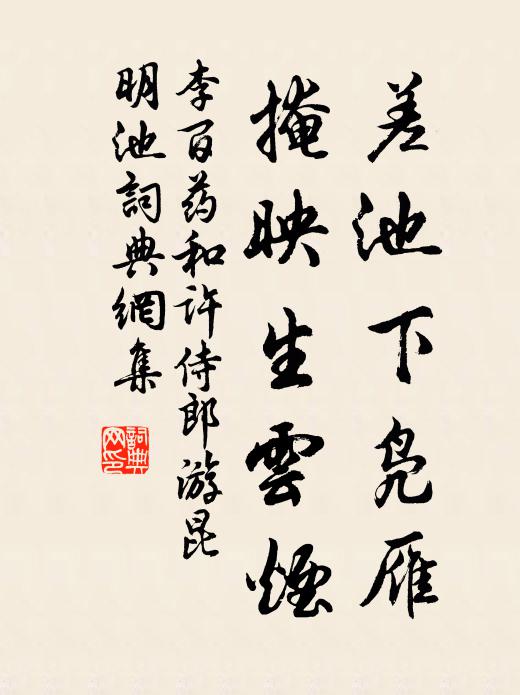 差池下凫雁
掩映生雲煙
李百药和許侍郎游昆
明池詞典網集
詞典
网印